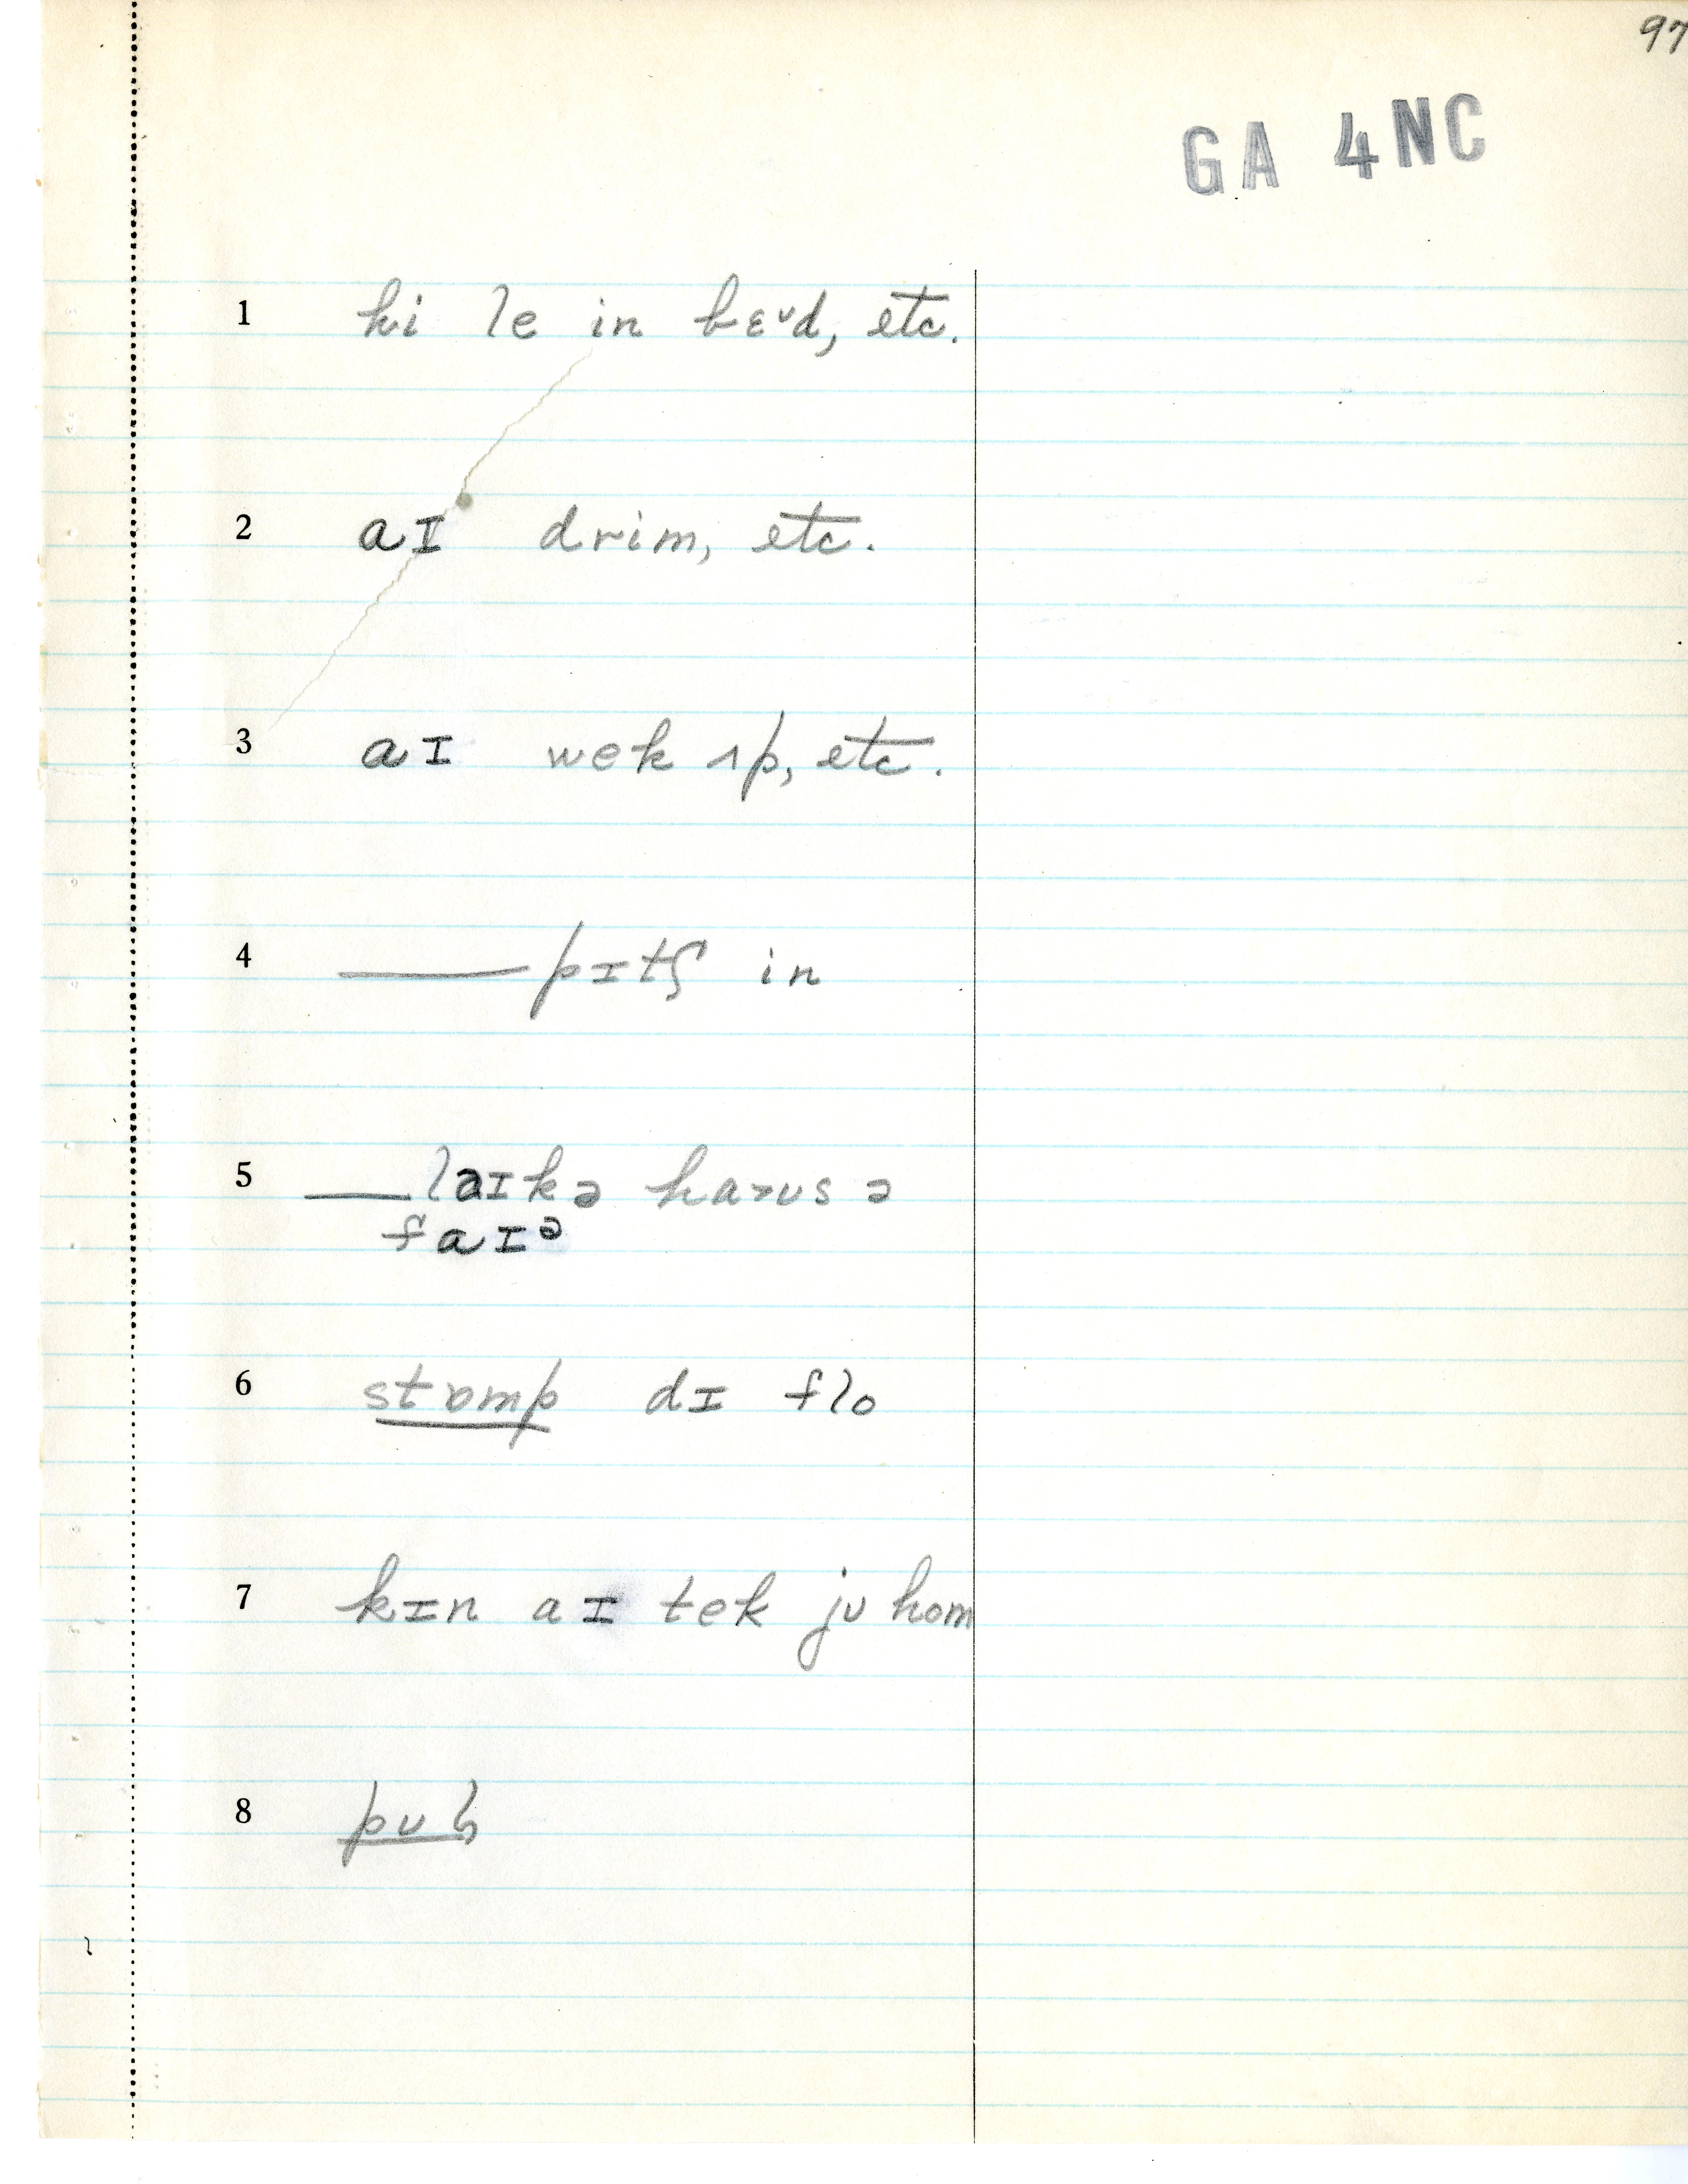 97
GA 4NC
1 hi le in bɛᵛd, etc.
2 aɪ drim, etc.
3 aɪ wek ʌp, etc.
4 —— pɪtʃ in
5 —— laɪkə
faɪᵊ
6 stɒmp dɪ flo
7 kɪn aɪ tek jʊ hom
8